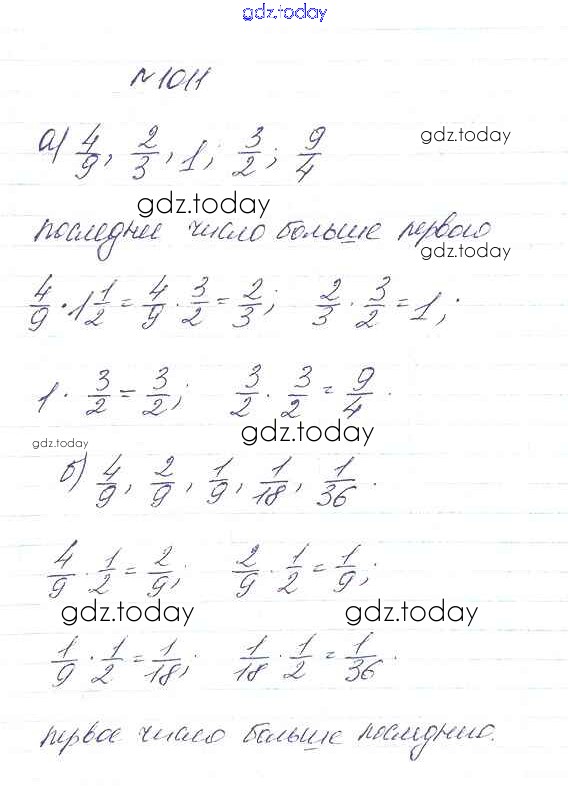 gdz.today
№1011
а) 4/9, 2/3, 1; 3/2; 9/4
gdz.today
gdz.today
последнее число больше первого
gdz.today
4/9 · 1 1/2 = 4/9 · 3/2 = 2/3; 2/3 · 3/2 = 1;
1 · 3/2 = 3/2; 3/2 · 3/2 = 9/4.
gdz.today
gdz.today
б) 4/9, 2/9, 1/9, 1/18, 1/36.
4/9 · 1/2 = 2/9; 2/9 · 1/2 = 1/9;
gdz.today gdz.today
1/9 · 1/2 = 1/18; 1/18 · 1/2 = 1/36.
первое число больше последнего.